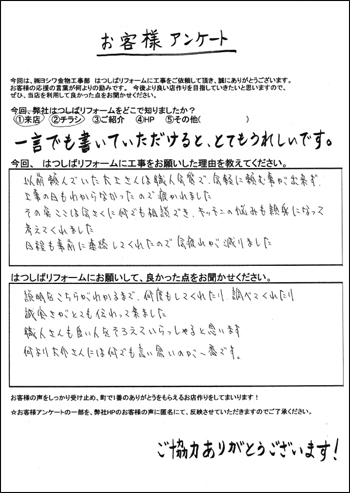 お客様 アンケート
今回は、㈱ヨシワ金物工事部 はつしばリフォームに工事をご依頼して頂き、誠にありがとうございます。
お客様の応援の言葉が何よりの励みです。 今後より良い店作りを目指していきたいと思いますので、
ぜひ、当店を利用して良かった点をお聞かせください。
今回、弊社はつしばリフォームをどこで知りましたか?
①来店 ②チラシ ③ご紹介 ④HP ⑤その他( )
一言でも書いていただけると、とてもうれしいです。
今回、 はつしばリフォームに工事をお願いした理由を教えてください。
以前頼んでいた大工さんは職人気質で、気軽に頼む事が出来ず、
工事の日もわからなかったので疲れました
その点ここは さんに何でも相談でき、キッチンの悩みも熱心になって
考えてくれました
日程も事前に連絡してくれたので気疲れが減りました
はつしばリフォームにお願いして、良かった点をお聞かせください。
説明をこちらがわかるまで、何度もしてくれたり 調べてくれたり
誠実さがとても伝わって来ました
職人さんも良い人をそろえていらっしゃると思います
何より さんには何でも言い易いのが一番です。
お客様の声をしっかり受け止め、町で1番のありがとうをもらえるお店作りをしてまいります!
☆お客様アンケートの一部を、弊社HPのお客様の声に匿名にて、反映させていただきますのでご了承ください。
ご協力ありがとうございます!